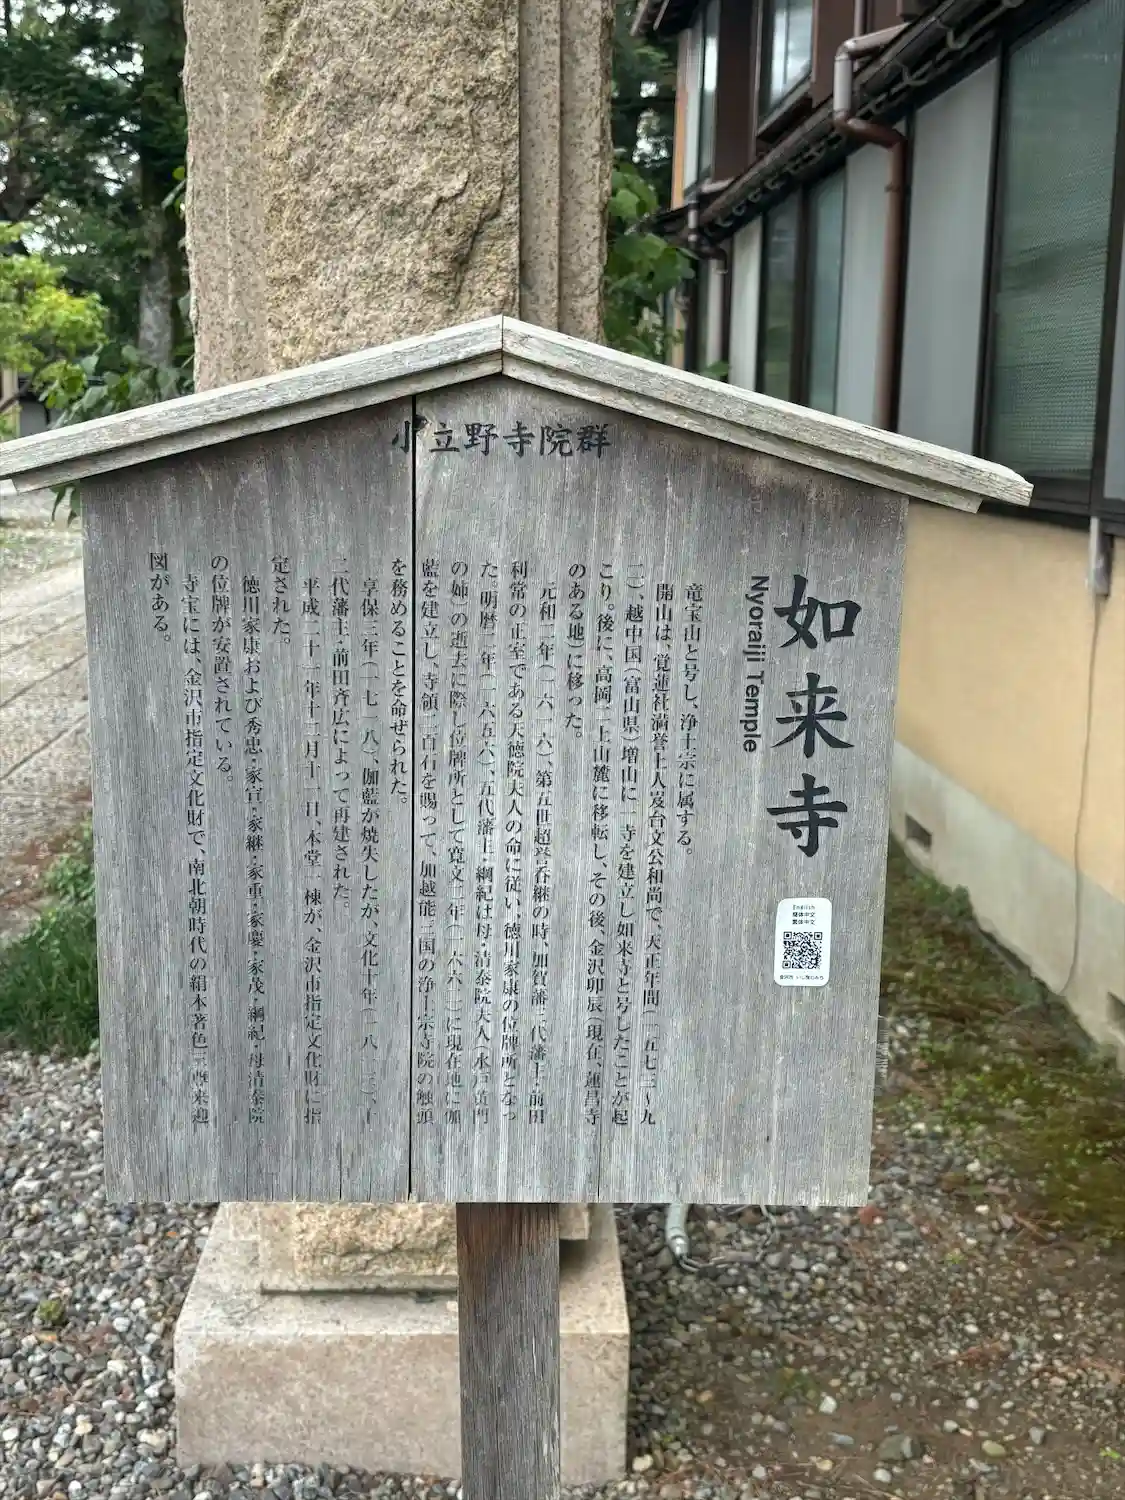 小立野寺院群
如来寺
Nyoraiji Temple
English
简体中文
繁体中文
竜宝山と号し、浄土宗に属する。
開山は、覚蓮社満誉上人岌台文公和尚で、天正年間(一五七三～九
二)、越中国(富山県)増山に一寺を建立し如来寺と号したことが起
こり。後に、高岡二上山麓に移転し、その後、金沢卯辰(現在、蓮昌寺
のある地)に移った。
元和二年(一六一六)、第五世超誉呑継の時、加賀藩三代藩主・前田
利常の正室である天徳院夫人の命に従い、徳川家康の位牌所となっ
た。明暦二年(一六五六)、五代藩主・綱紀は母・清泰院夫人(水戸黄門
の姉)の逝去に際し位牌所として寛文二年(一六六二)に現在地に伽
藍を建立し、寺領二百石を賜って、加越能三国の浄土宗寺院の触頭
を務めることを命ぜられた。
享保三年(一七一八)、伽藍が焼失したが、文化十年(一八一三)、十
二代藩主・前田斉広によって再建された。
平成二十一年十二月十一日、本堂一棟が、金沢市指定文化財に指
定された。
徳川家康および秀忠・家宣・家継・家重・家慶・家茂・綱紀・母清泰院
の位牌が安置されている。
寺宝には、金沢市指定文化財で、南北朝時代の絹本著色三尊来迎
図がある。